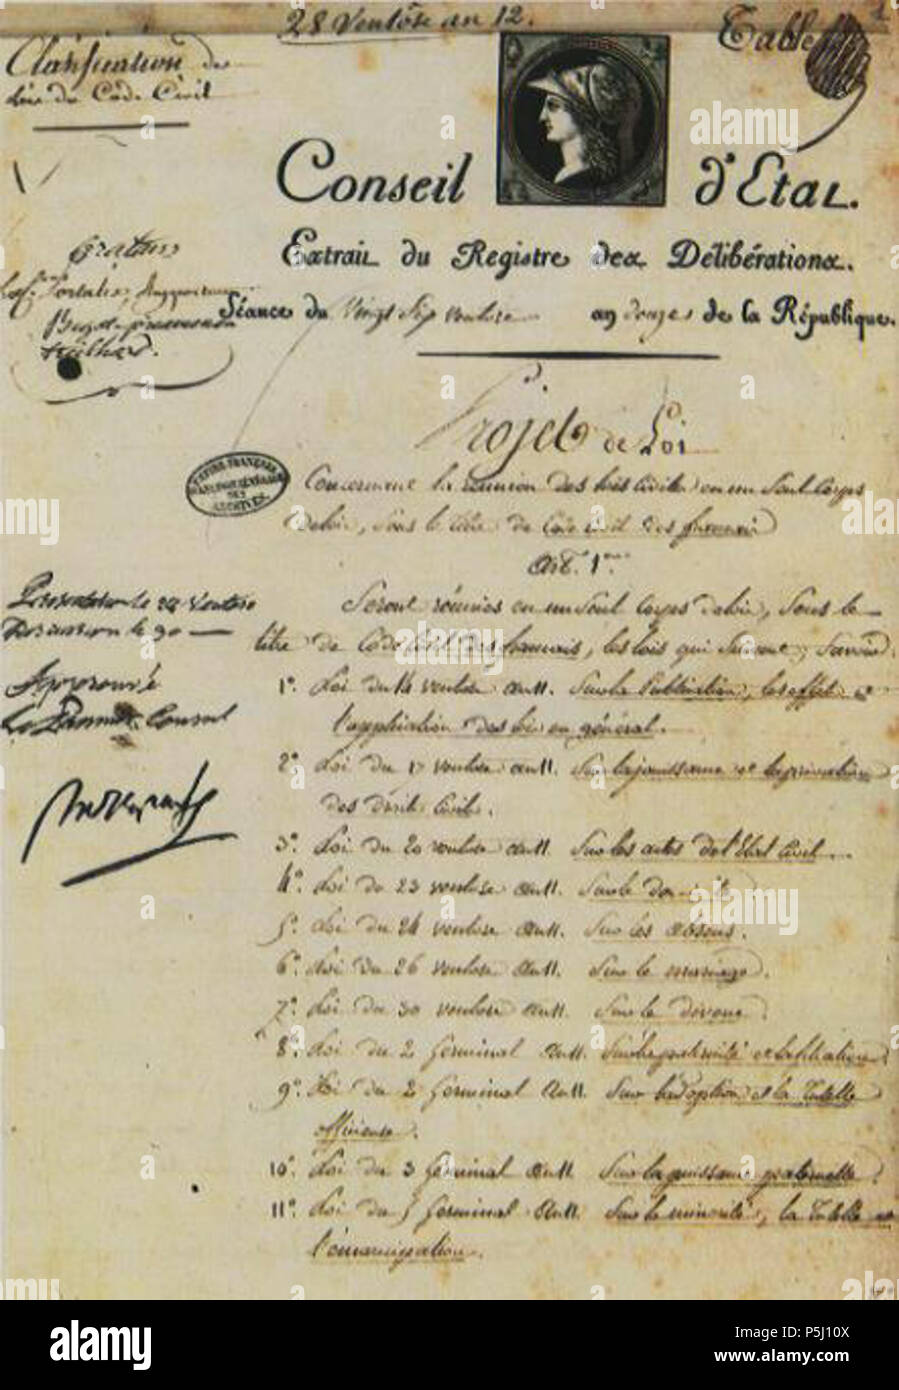 28 Ventôse an 12.
Table
1
Classification des
Lois du Code Civil
Conseil d'Etat.
Extrait du Registre des Délibérations.
Séance du Vingt Six ventose an douze de la République.
Orateurs
Portalis,
Treilhard.
Projet de Loi
EMPIRE FRANÇAIS
DES
ARCHIVES.
Concernant la réunion des lois Civiles en un Seul Corps
de loix, Sous le titre de Code civil des français
Art. 1er
Présentation le 24 Ventose
Discussion le 30
Seront réunies en un Seul Corps de loix, Sous le
titre de Code Civil des français, les lois qui Suivent; Savoir.
Approuvé
Le Premier Consul
1º. Loi du 14 ventose an 11. Sur la Publication, les effets et
l'application des lois en général.
2º. Loi du 17 ventose an 11. Sur la jouissance et la privation
des droits Civils.
Bonaparte
3º. Loi du 20 ventose an 11. Sur les actes de l'Etat Civil.
4º. Loi du 23 ventose an 11. Sur le domicile
5º. Loi du 24 ventose an 11. Sur les absens.
6º. Loi du 26 ventose an 11. Sur le mariage.
7º. Loi du 30 ventose an 11. Sur le divorce.
8º. Loi du 2 Germinal an 11. Sur la paternité et la filiation.
9º. Loi du 2 Germinal an 11. Sur l'adoption et la Tutelle
officieuse.
10º. Loi du 3 Germinal an 11 Sur la puissance paternelle.
11º. Loi du 5 Germinal an 11. Sur la minorité, la Tutelle et
l'émancipation.
alamy
Image ID: P5J10X
www.alamy.com